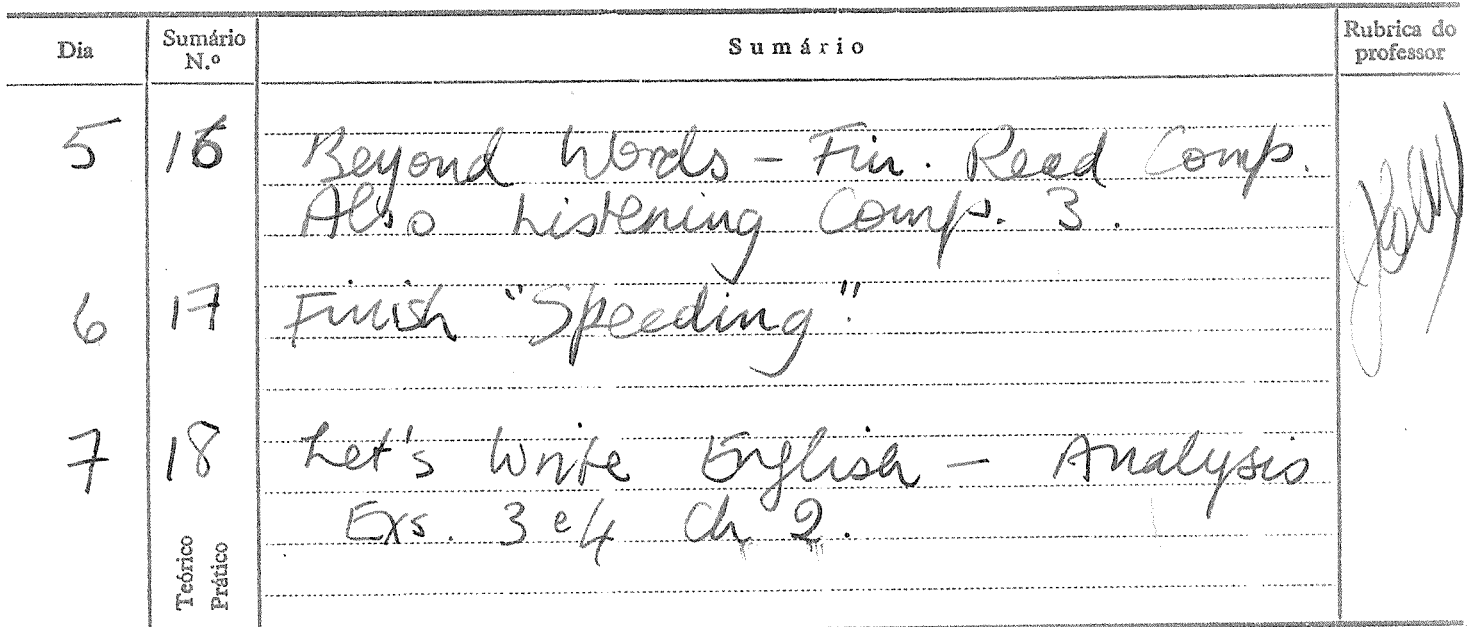 Dia Sumário N.º Sumário Rubrica do professor
5 16 Beyond Words - Fin. Read Comp.
Also Listening Comp. 3.
6 17 Finish "Speeding".
7 18 Let's Write English - Analysis
Exs. 3 e 4 Ch 2.
Teórico
Prático